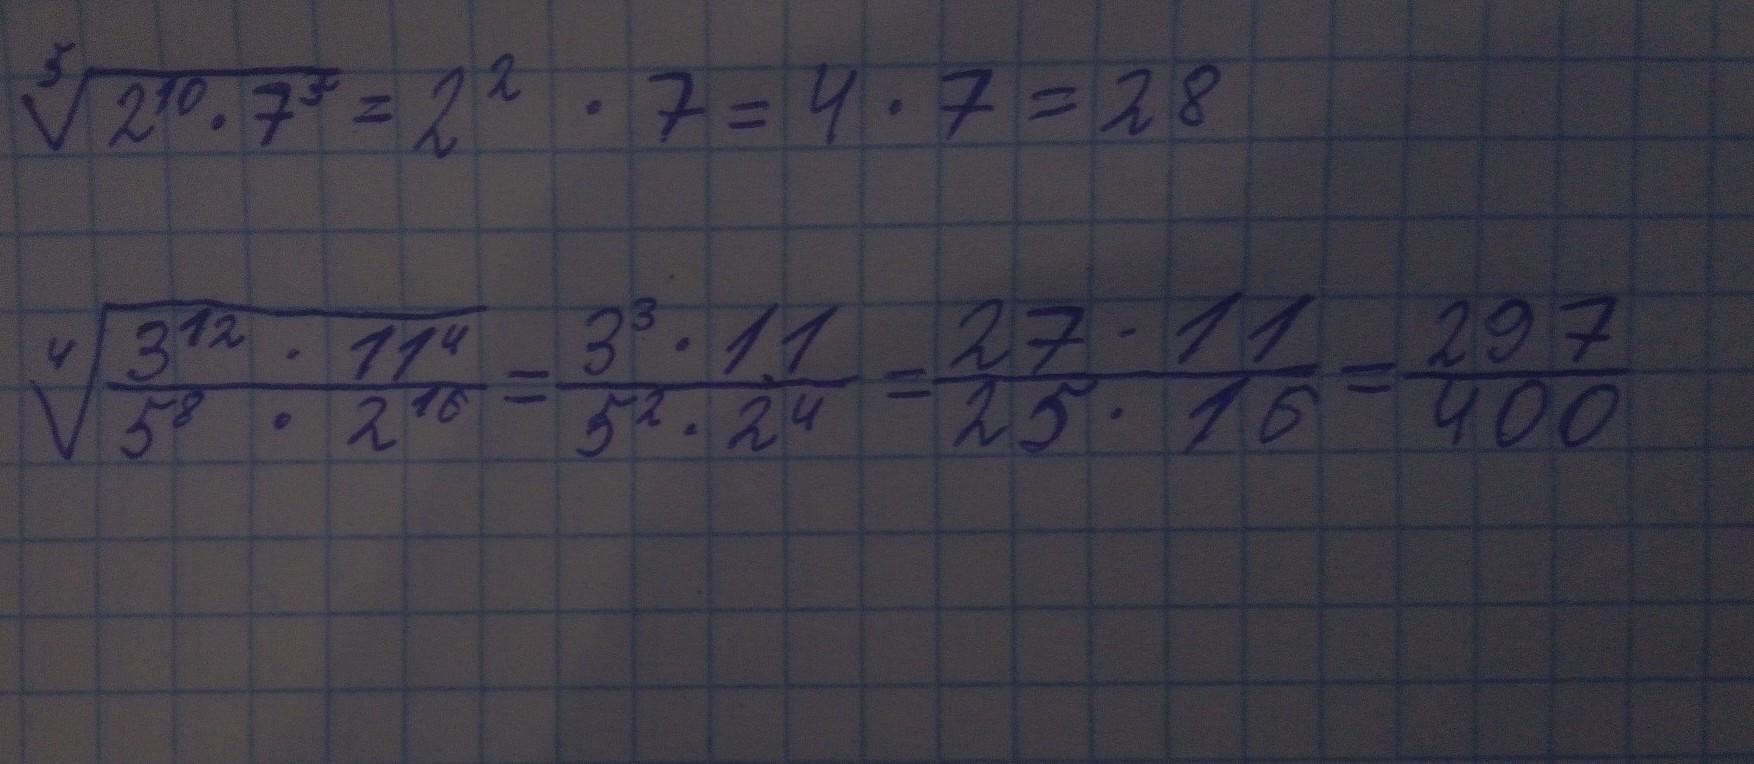 ⁵√(2¹⁰ · 7⁵) = 2² · 7 = 4 · 7 = 28
⁴√((3¹² · 11⁴)/(5⁸ · 2¹⁶)) = (3³ · 11)/(5² · 2⁴) = (27 · 11)/(25 · 16) = 297/400